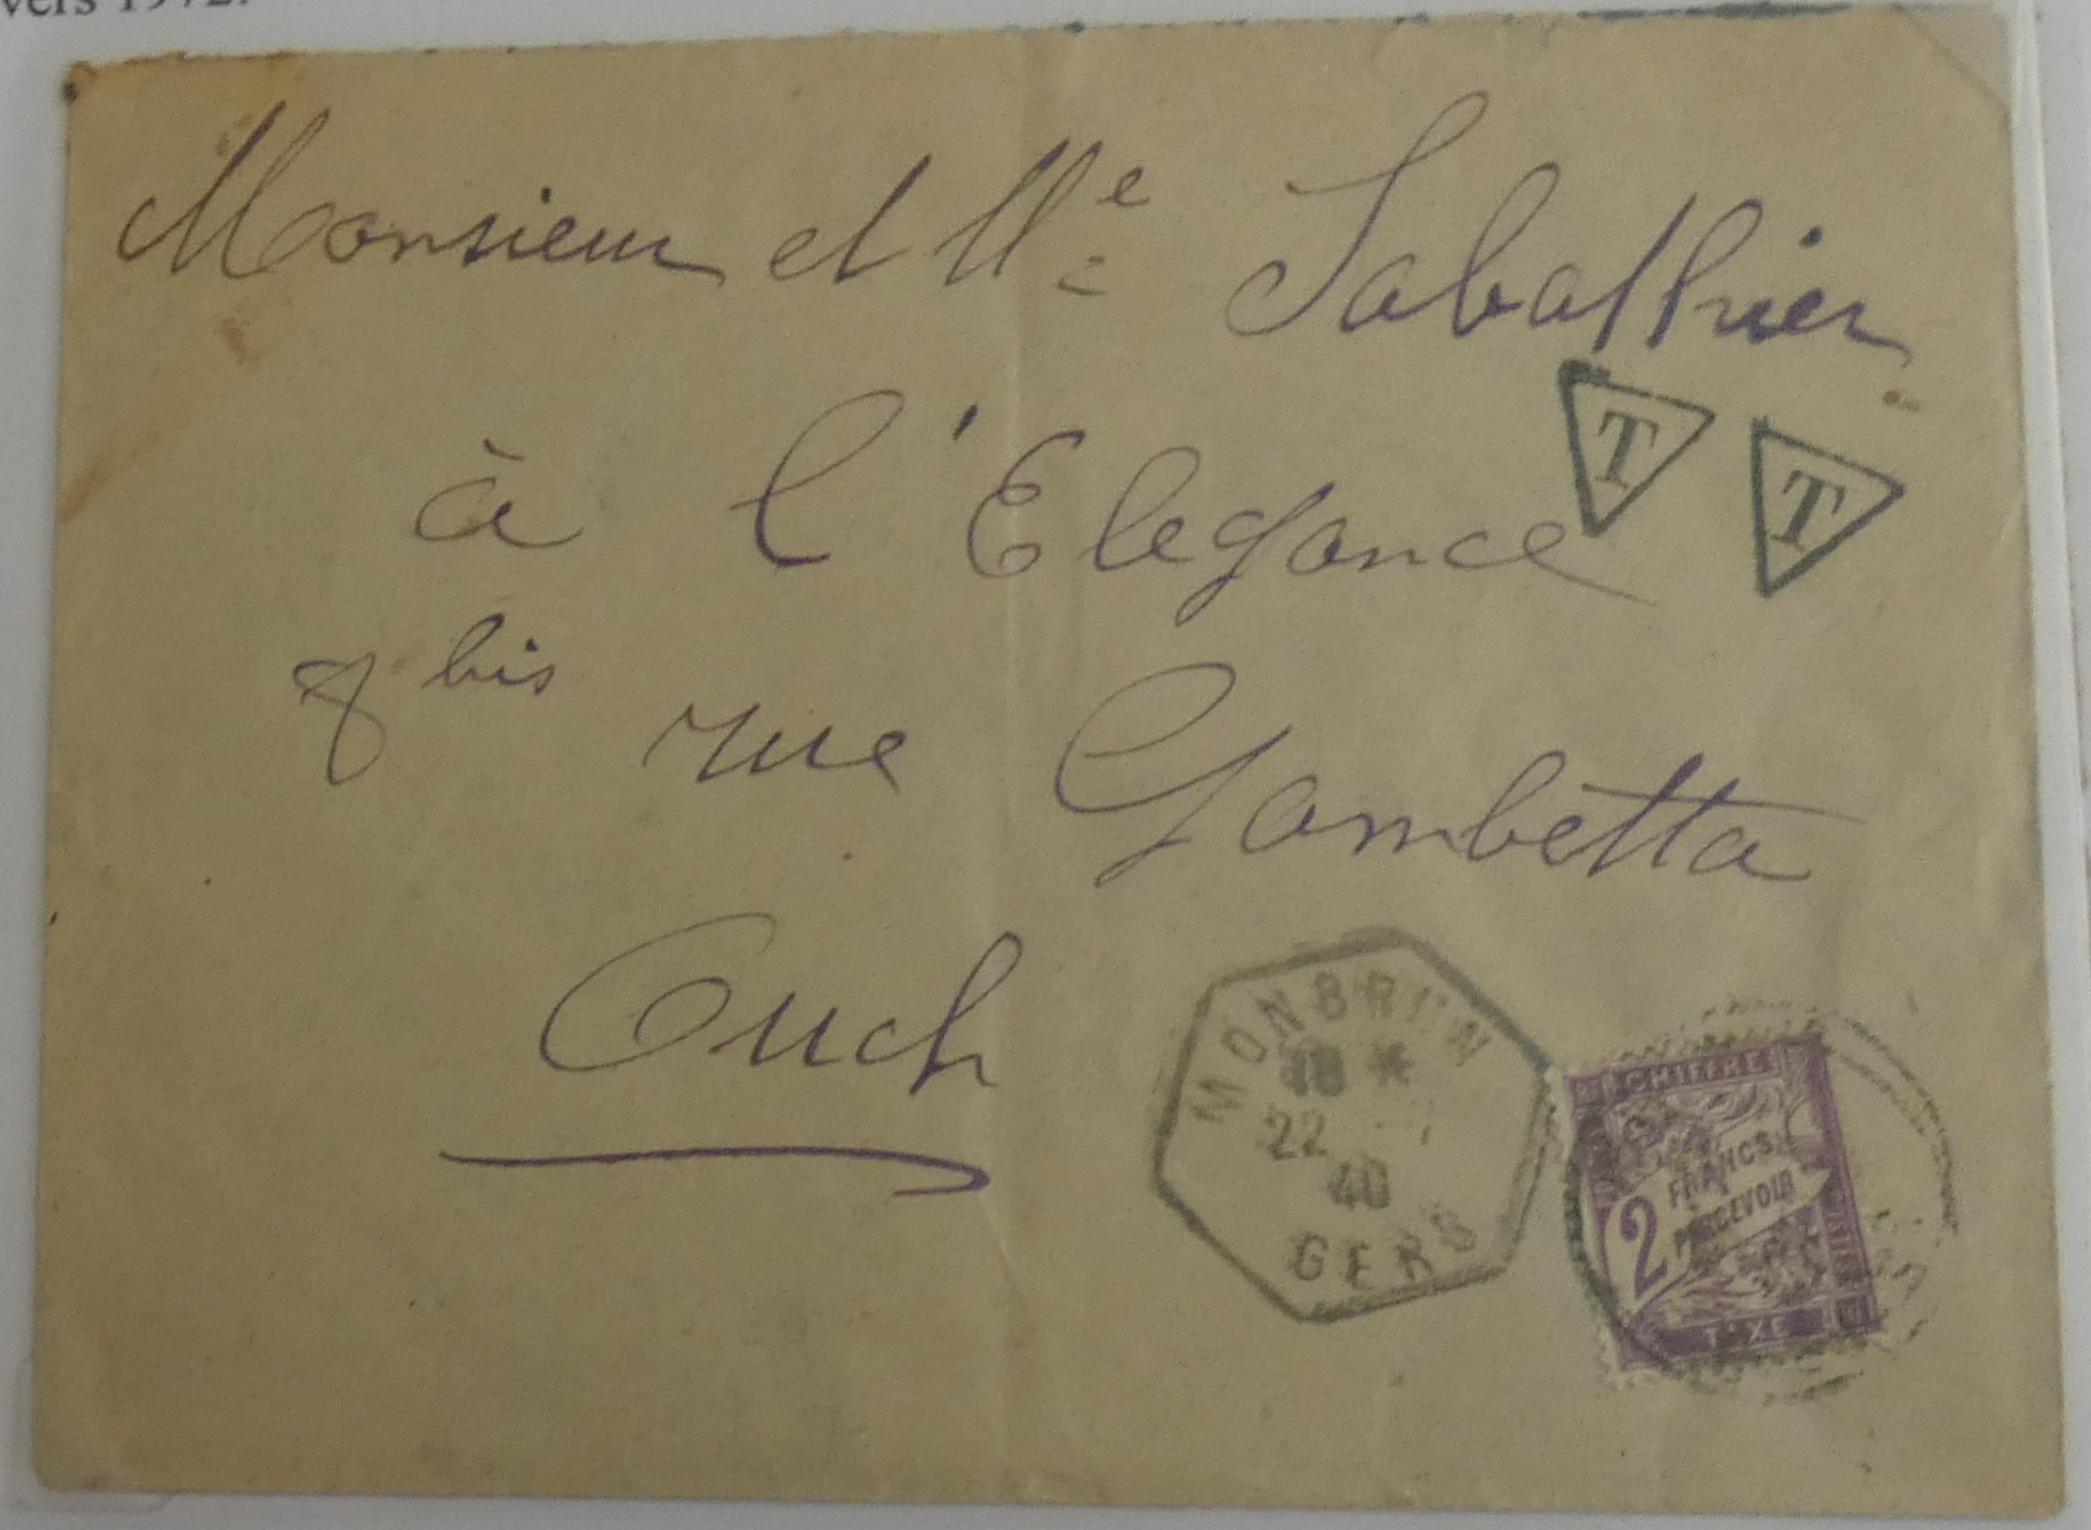 vers 1972.
Monsieur et Me Sabathier
à l'Elegance
T T
8 bis rue Gambetta
Auch
MONBRUN
18 *
22
40
GERS
CHIFFRE
2 FRANCS
PERCEVOIR
TAXE